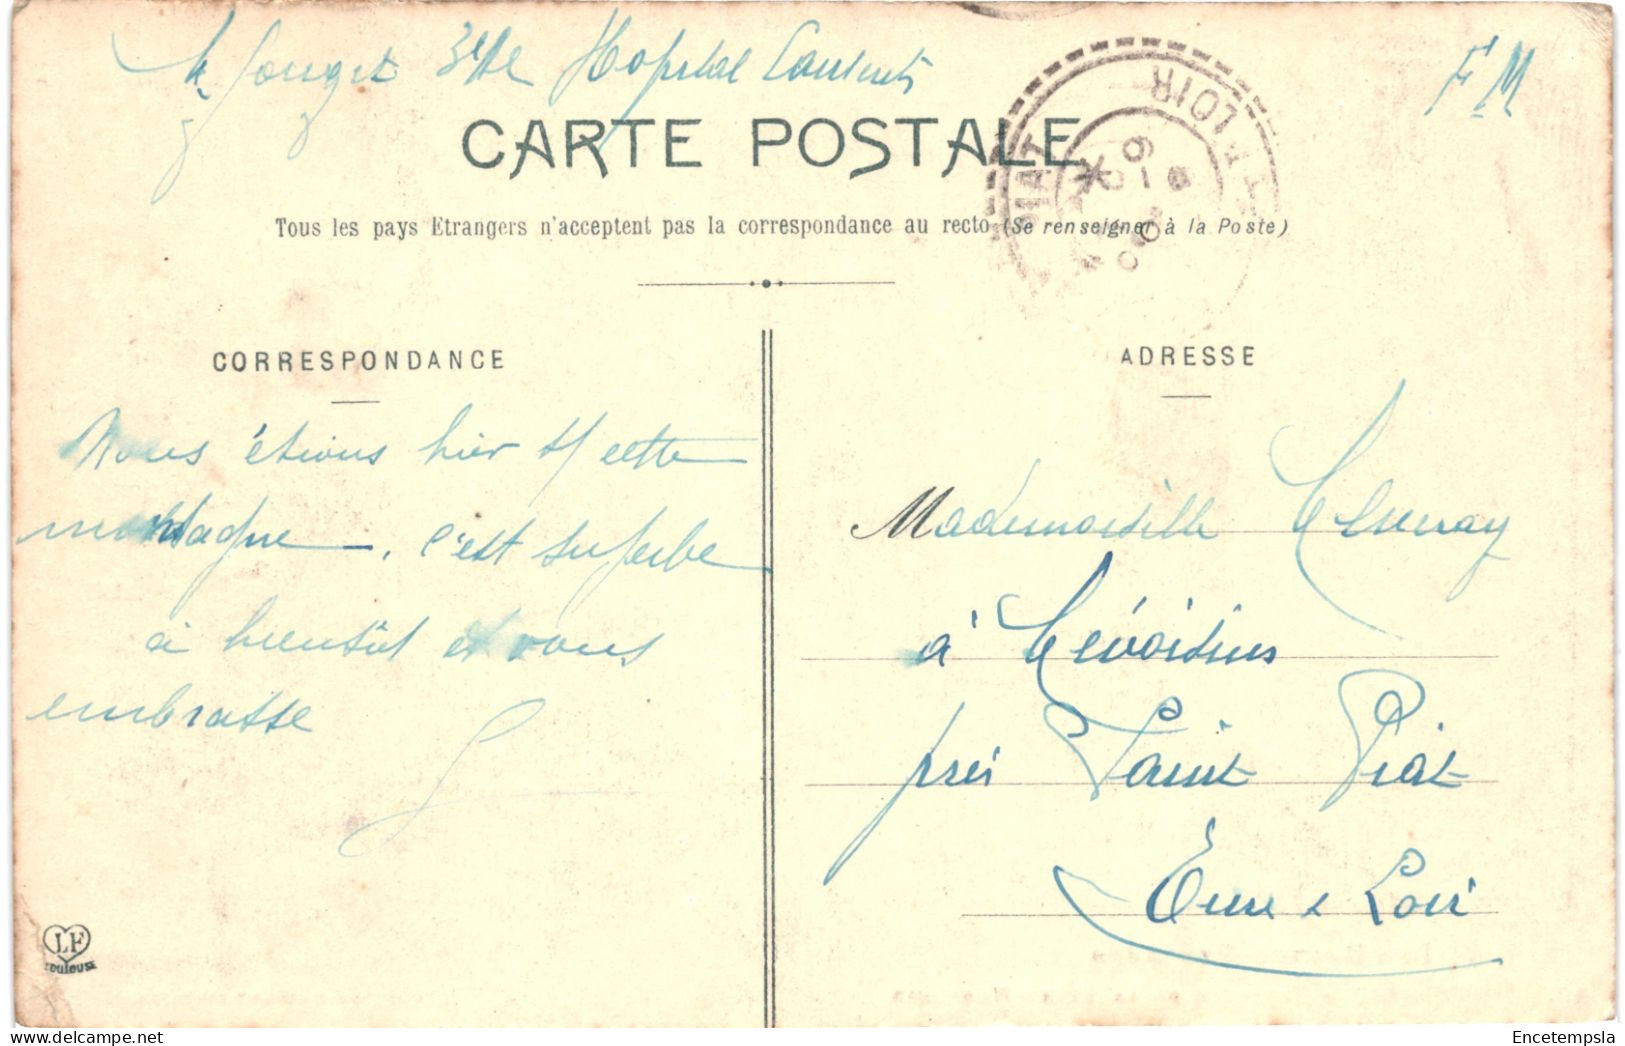 Hopital
F M
CARTE POSTALE
Tous les pays Etrangers n'acceptent pas la correspondance au recto (Se renseigner à la Poste)
PIAT
ET LOIR
CORRESPONDANCE
ADRESSE
Nous étions hier s/ cette
montagne, c'est superbe
à bientôt et vous
embrasse
Mademoiselle
à
près Saint Piat
Eure & Loir
LF
TOULOUSE
Encetempsla